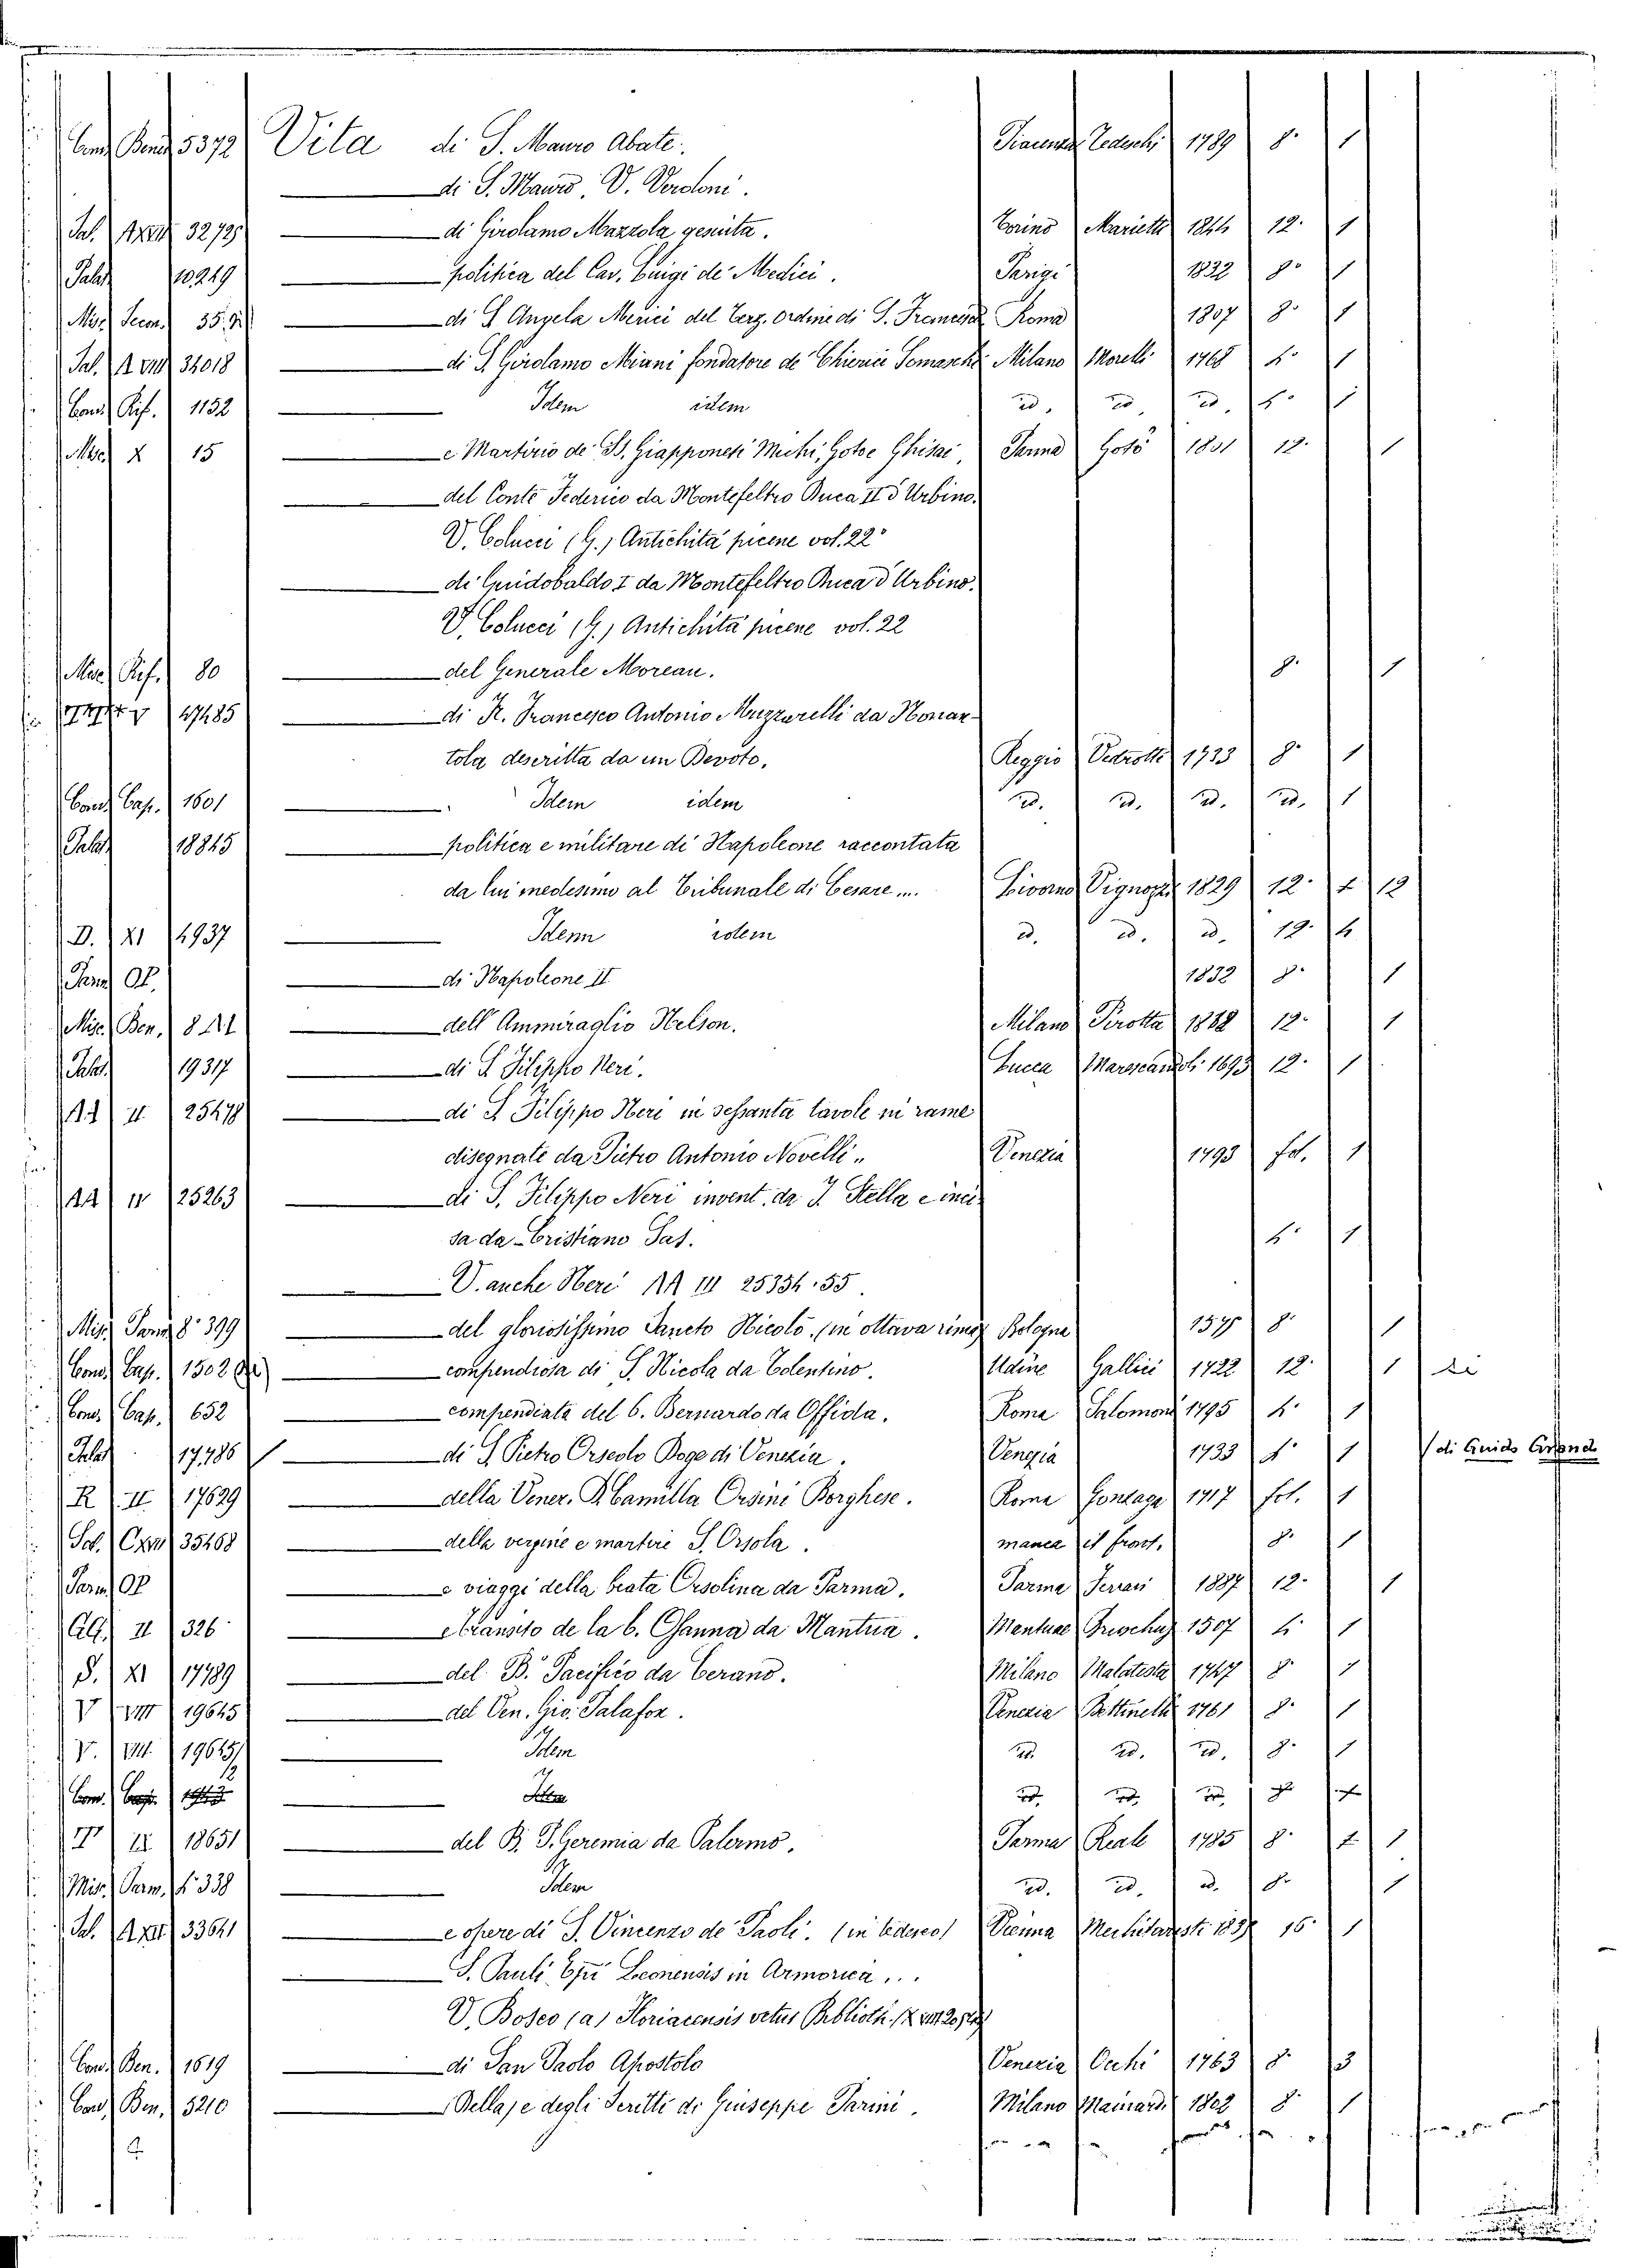 Cons. Bened. 5372 Vita di S. Mauro Abate. Piacenza Tedeschi 1789 8° 1
di S. Mauro. V. Verdoni.
Sal. AXVII 32725 di Girolamo Mazzola gesuita. Torino Marietti 1844 12. 1
Palat. 10249 politica del Cav. Luigi de' Medici. Parigi 1832 8° 1
Misc. Secon. 35.9 di S. Angela Merici del Terz. ordine di S. Francesco Roma 1807 8. 1
Sal. A VIII 34018 di S. Girolamo Miani fondatore de' Chierici Somaschi Milano Morelli 1768 4° 1
Cons. Rif. 1152 Idem idem id. id. id. 4° 1
Misc. X 15 e Martirio de' SS. Giapponesi Michi, Gotoe Ghisai Parma Gotò 1801 12. 1
del Conte Federico da Montefeltro Duca II d'Urbino.
V. Colucci (G.) Antichità picene vol. 22°
di Guidobaldo I da Montefeltro Duca d'Urbino.
V. Colucci (G.) Antichità picene vol. 22
Misc. Rif. 80 del Generale Moreau. 8. 1
17485 di K. Francesco Antonio Muzzarelli da Nonan-
tola descritta da un Devoto. Reggio Vedrotti 1733 8° 1
Cons. Cap. 1601 Idem idem id. id. id. id. 1
Palat. 18845 politica e militare di Napoleone raccontata
da lui medesimo al Tribunale di Cesare.... Livorno Vignozzi 1829 12. 12
D. XI 4937 Idem idem id. id. id. 12. 4
Parm. OP. di Napoleone II 1832 8. 1
Misc. Ben. 8 dell'Ammiraglio Nelson. Milano Pirotta 1888 12. 1
Palat. 19317 di S. Filippo Neri. Lucca Marescandoli 1693 12. 1
AA II 25478 di S. Filippo Neri in sessanta tavole in rame
disegnate da Pietro Antonio Novelli.. Venezia 1793 fol. 1
AA IV 25263 di S. Filippo Neri invent. da J. Stella e inci-
sa da Cristiano Sas. 4. 1
V. anche Neri AA III 25354.55
Misc. Parm. 8° 399 del gloriosissimo Sancto Nicolo. (in ottava rima) Bologna 1575 8. 1
Cons. Cap. 1502 compendiosa di S. Nicola da Tolentino. Udine Gallici 1722 12. 1
Cons. Cap. 652 compendiata del b. Bernardo da Offida. Roma Salomoni 1795 4. 1
Palat. 17486 di S. Pietro Orseolo Doge di Venezia. Venezia 1733 4. 1 (di Guido Grandi
R II 17629 della Vener. D. Camilla Orsini Borghese. Roma Gonzaga 1717 fol. 1
Sal. CXVI 35468 della vergine e martire S. Orsola. manca il front. 8. 1
Parm. OP e viaggi della beata Orsolina da Parma. Parma Ferrari 1887 12. 1
All. II 326 e transito de la b. Osanna da Mantua. Mantuae 1507 4. 1
S. XI 17789 del B. Pacifico da Cerano. Milano Malatesta 1747 8. 1
V VIII 19645 del Ven. Gio. Palafox. Venezia Bettinelli 1761 8. 1
V. VIII. 19645/2 Idem id. id. id. 8. 1
Idem id. id. id. 8
T IX 18651 del B. P. Geremia da Palermo. Parma Reale 1785 8. 1
Misc. Parm. 4° 338 Idem id. id. id. 8. 1
Sal. AXII 33641 e opere di S. Vincenzo de' Paoli. (in tedesco) Vienna 16. 1
S. Pauli Epi Leonensis in Armorica...
V. Bosco (a) Floriacensis vetus Biblioth.
Cons. Ben. 1619 di San Paolo Apostolo Venezia Occhi 1763 8. 3
Cons. Ben. 5210 (Della) e degli Scritti di Giuseppe Parini. Milano Mainardi 1802 8. 1